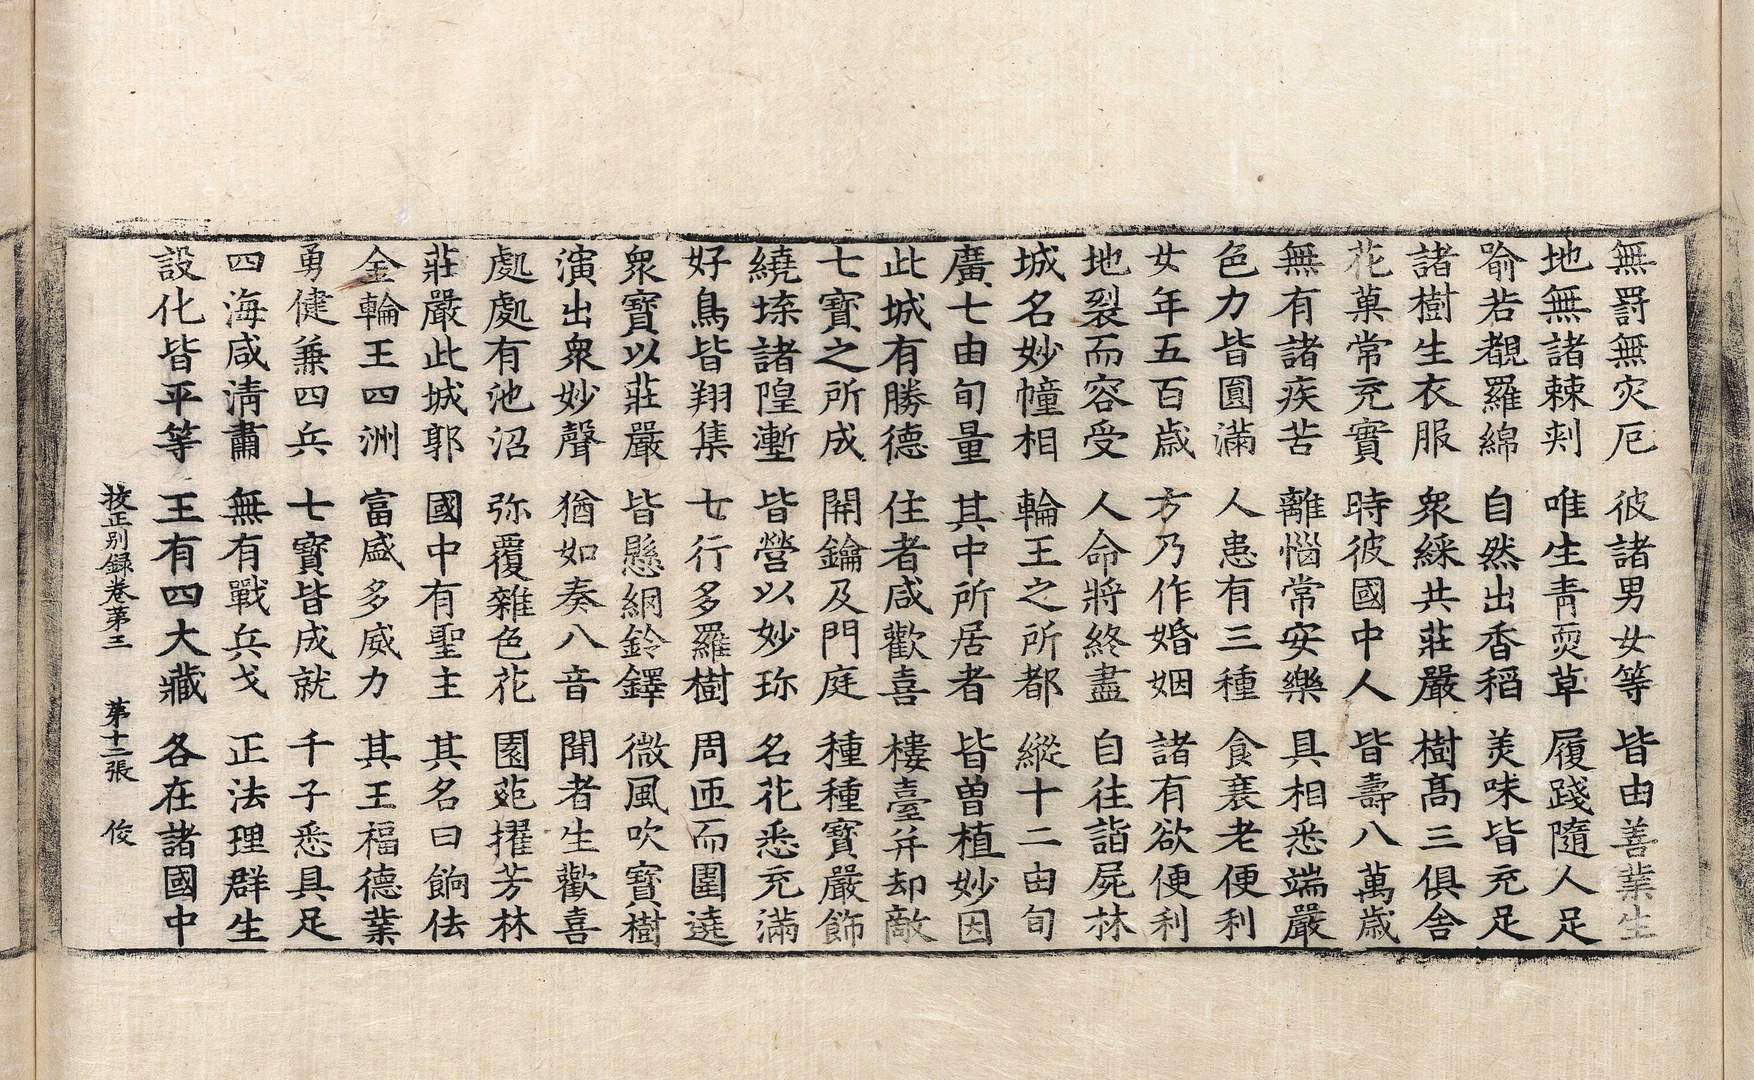 無罸無灾厄　彼諸男女等　皆由善業生
地無諸棘刺　唯生青耎草　履踐隨人足
喻若覩羅綿　自然出香稻　美味皆充足
諸樹生衣服　衆綵共莊嚴　樹髙三俱舎
花菓常充實　時彼國中人　皆壽八萬歳
無有諸疾苦　離惱常安樂　具相悉端嚴
色力皆圓滿　人患有三種　食衰老便利
女年五百歳　方乃作婚姻　諸有欲便利
地裂而容受　人命將終盡　自往詣屍林
城名妙幢相　輪王之所都　縱十二由旬
廣七由旬量　其中所居者　皆曽植妙因
此城有勝德　住者咸歡喜　樓臺并却敵
七寶之所成　開鑰及門庭　種種寶嚴飾
繞垛諸隍塹　皆營以妙珎　名花悉充滿
好鳥皆翔集　七行多羅樹　周匝而圍遶
衆寶以莊嚴　皆懸網鈴鐸　微風吹寶樹
演出衆妙聲　猶如奏八音　聞者生歡喜
處處有池沼　弥覆雜色花　園苑擢芳林
莊嚴此城郭　國中有聖主　其名曰餉佉
金輪王四洲　富盛多威力　其王福德業
勇健兼四兵　七寶皆成就　千子悉具足
四海咸清肅　無有戰兵戈　正法理群生
設化皆平等　王有四大藏　各在諸國中
挍正別録卷第三　第十二張　俊